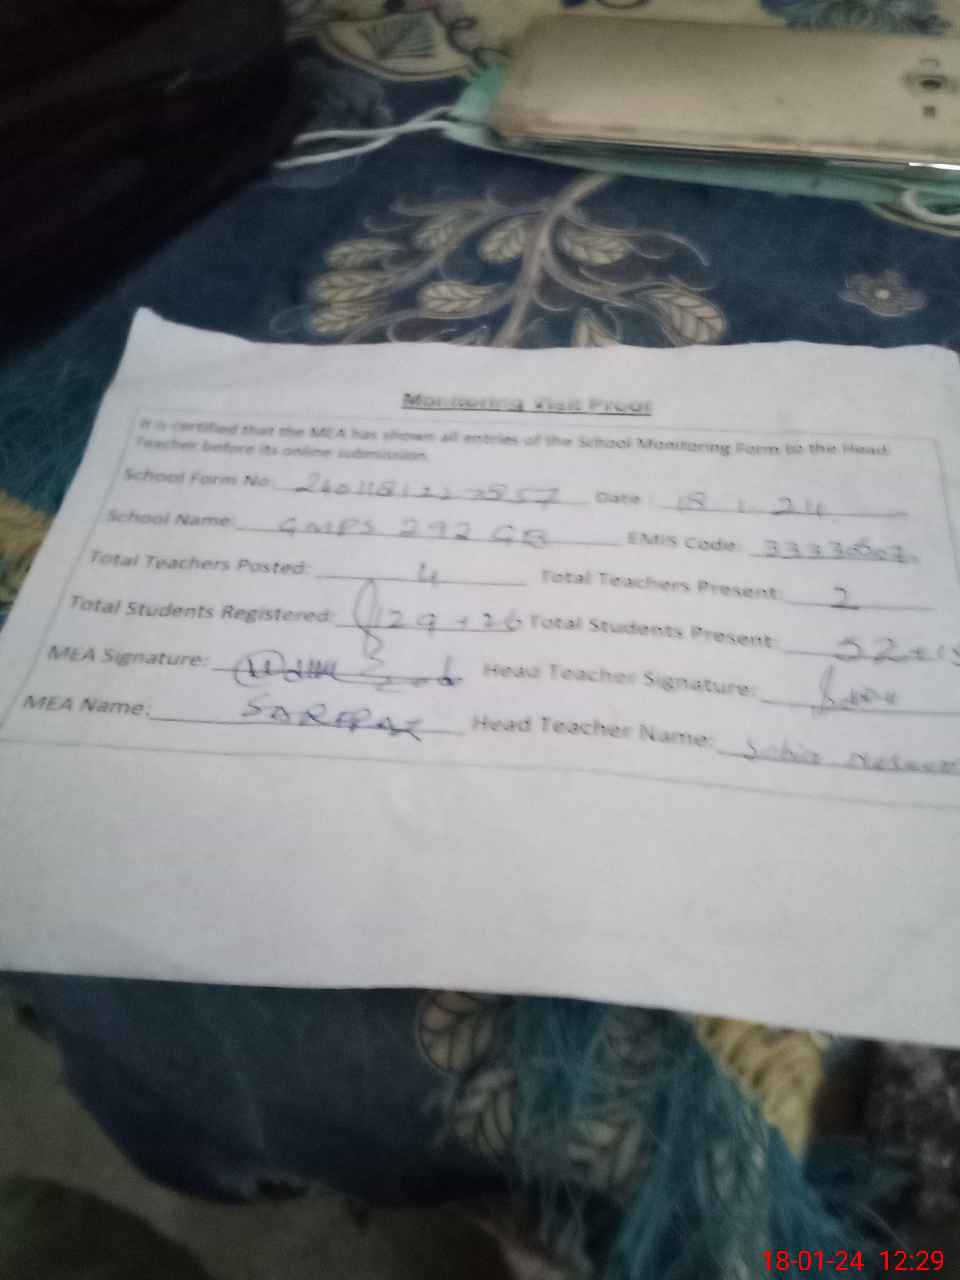 Monitoring Visit Proof
It is certified that the MEA has shown all entries of the School Monitoring Form to the Head
Teacher before its online submission.
School Form No: Date: 18 1 24
School Name: GMPS 292 GB EMIS Code:
Total Teachers Posted: 4 Total Teachers Present: 2
Total Students Registered: 129+26 Total Students Present: 52+
MEA Signature: Head Teacher Signature:
MEA Name: SARFRAZ Head Teacher Name:
18-01-24 12:29